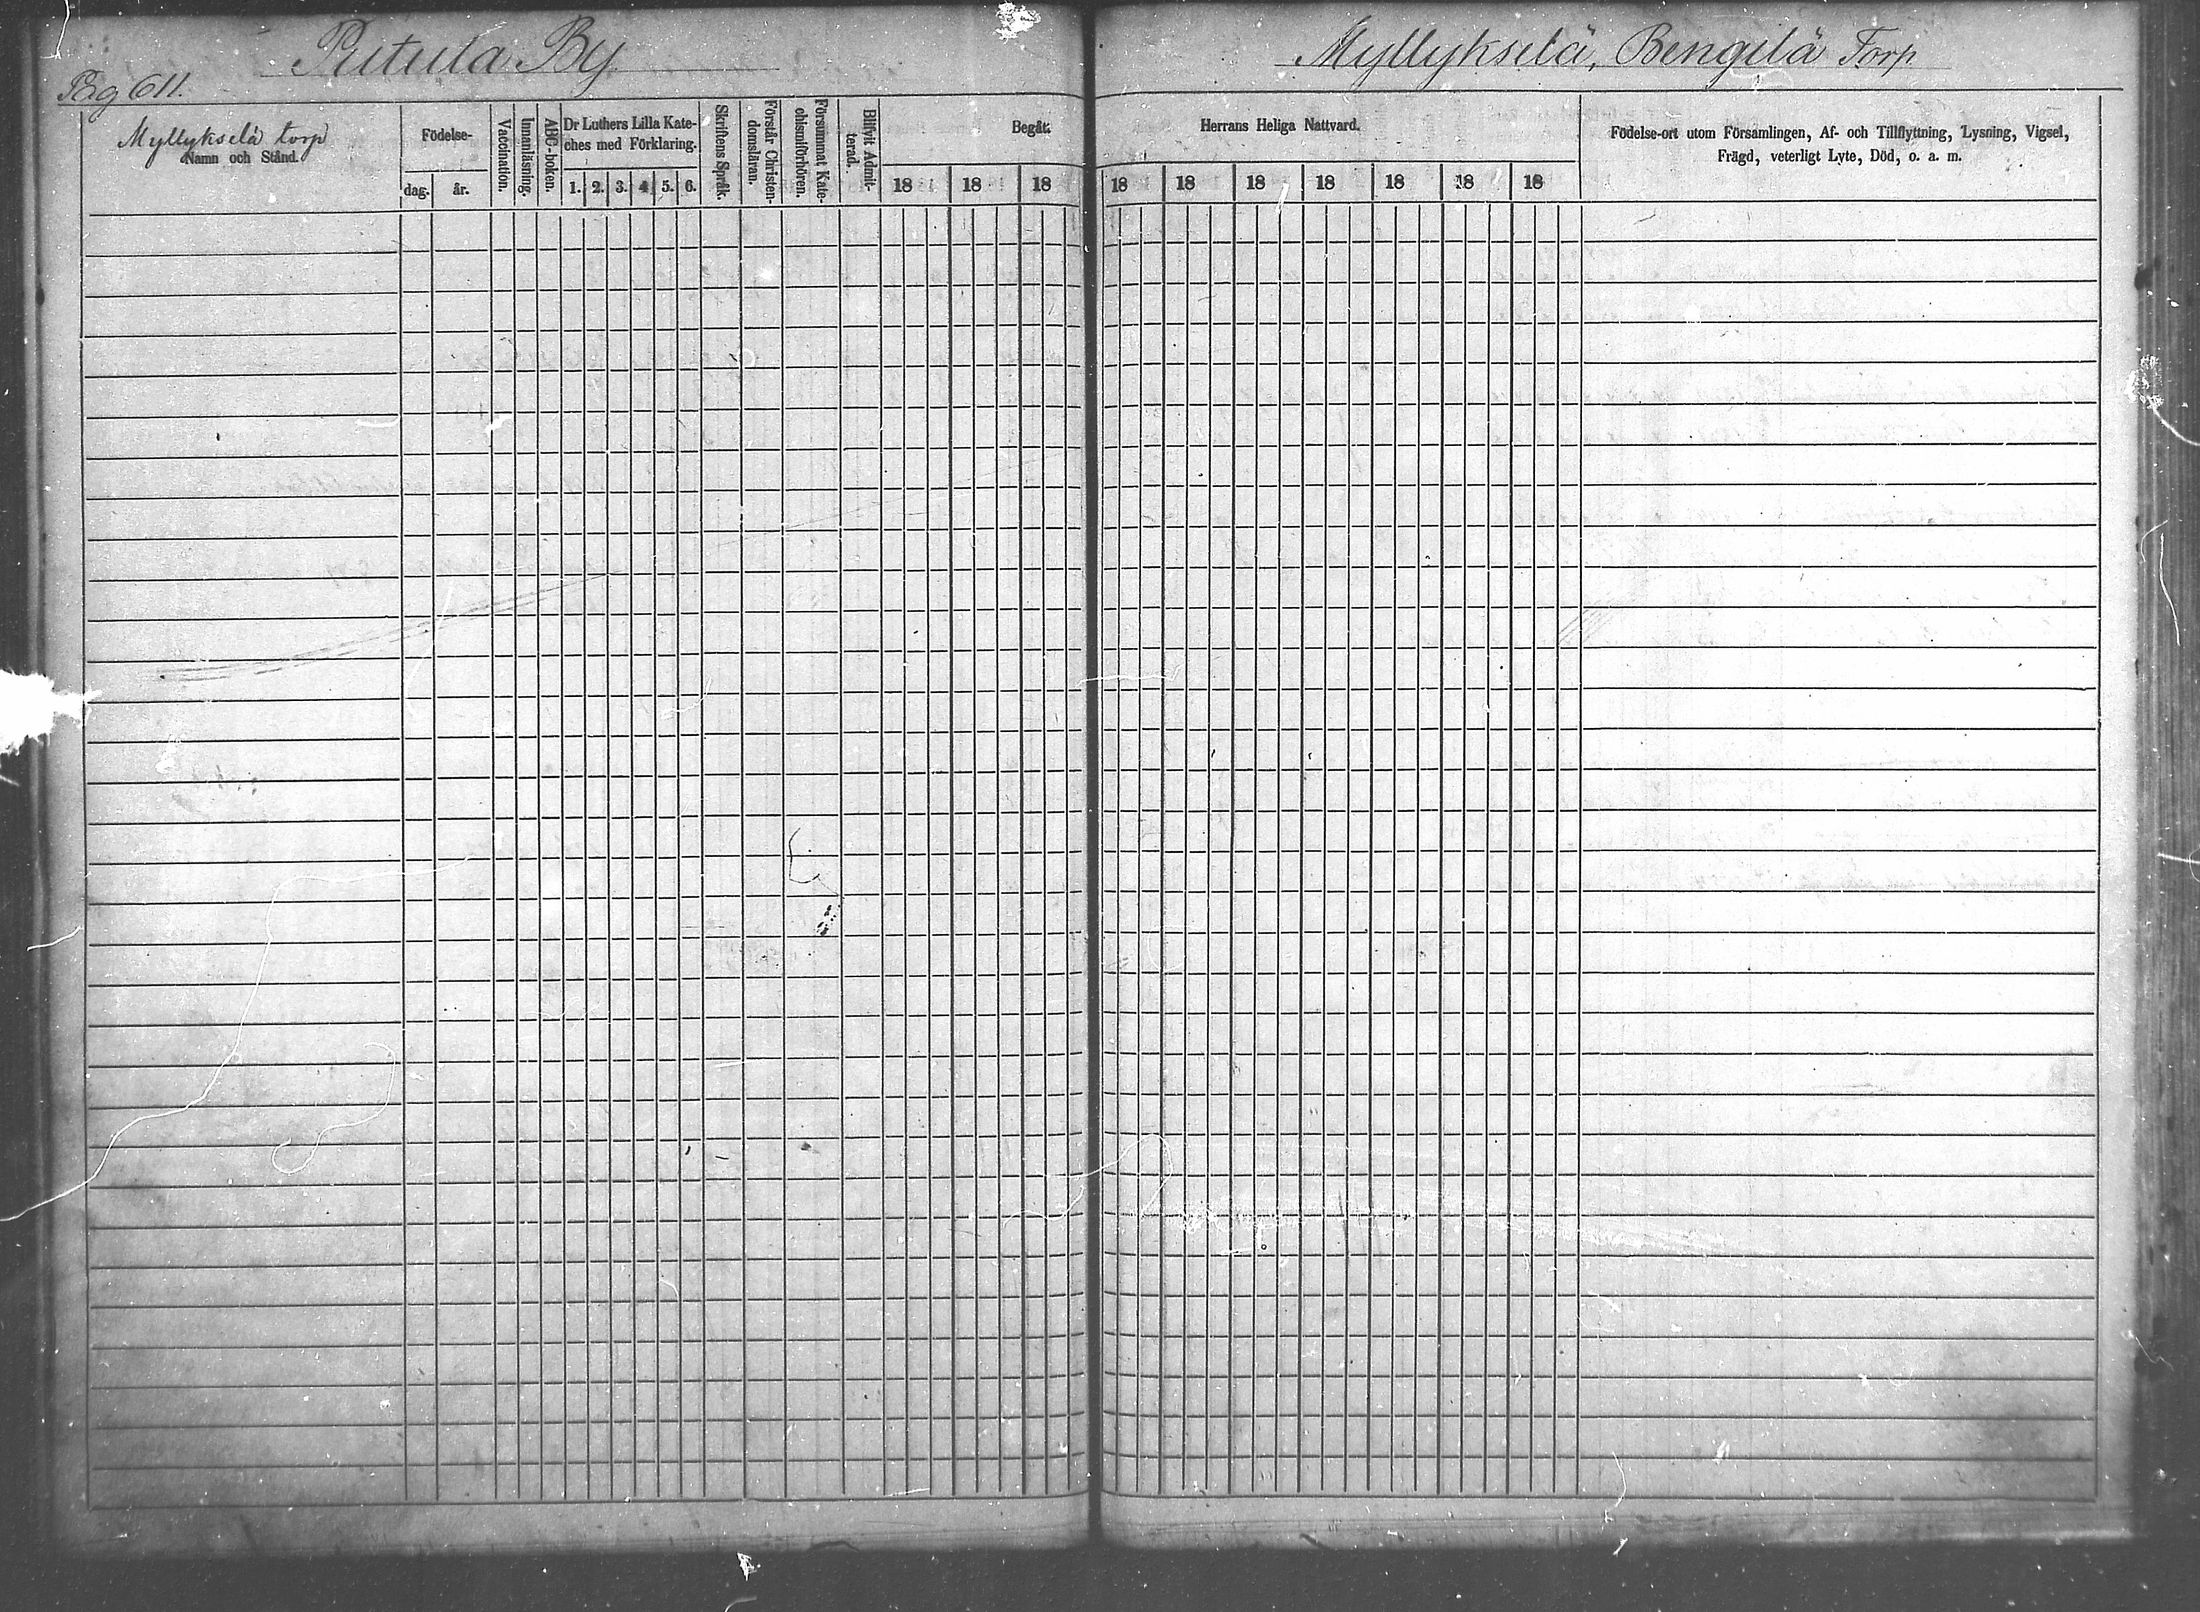 Putula By
Myllykselä, Bengilä Torp
Pag 611.
Myllykselä torp
Namn och Stånd.
Födelse-
dag.
år.
Vaccination.
Innanläsning.
ABC-boken.
Dr Luthers Lilla Kate-
ches med Förklaring.
1. 2. 3. 4. 5. 6.
Skriftens Språk.
Förstår Christen-
domsläran.
Försummat Kate-
chismiförhören.
Blifvit Admit-
terad.
Begåt.
18 18 18
Herrans Heliga Nattvard.
18 18 18 18 18 18 18
Födelse-ort utom Församlingen, Af- och Tillflyttning, Lysning, Vigsel,
Frägd, veterligt Lyte, Död, o. a. m.